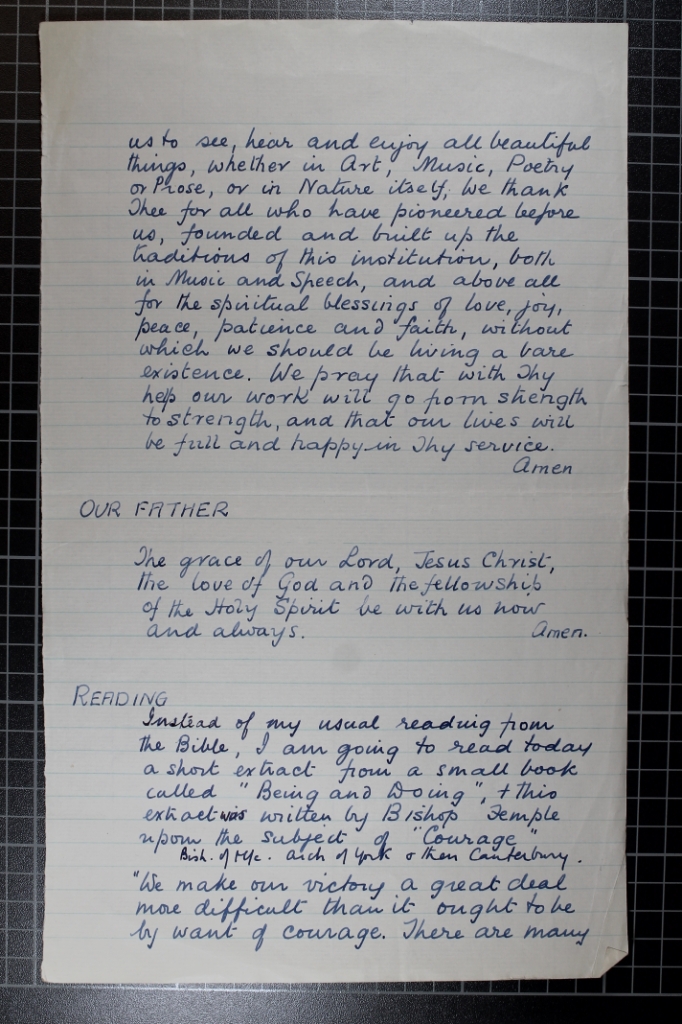 us to see, hear and enjoy all beautiful
things, whether in Art, Music, Poetry
or Prose, or in Nature itself, we thank
Thee for all who have pioneered before
us, founded and built up the
traditions of this institution, both
in Music and Speech, and above all
for the spiritual blessings of love, joy,
peace, patience and faith, without
which we should be living a bare
existence. We pray that with Thy
help our work will go from strength
to strength, and that our lives will
be full and happy in Thy service.
Amen
OUR FATHER
The grace of our Lord, Jesus Christ,
the love of God and the fellowship
of the Holy Spirit be with us now
and always. Amen.
READING
Instead of my usual reading from
the Bible, I am going to read today
a short extract from a small book
called "Being and Doing", + this
extract was written by Bishop Temple
upon the subject of "Courage"
Bish. of M/c. Arch of York & then Canterbury.
"We make our victory a great deal
more difficult than it ought to be
by want of courage. There are many